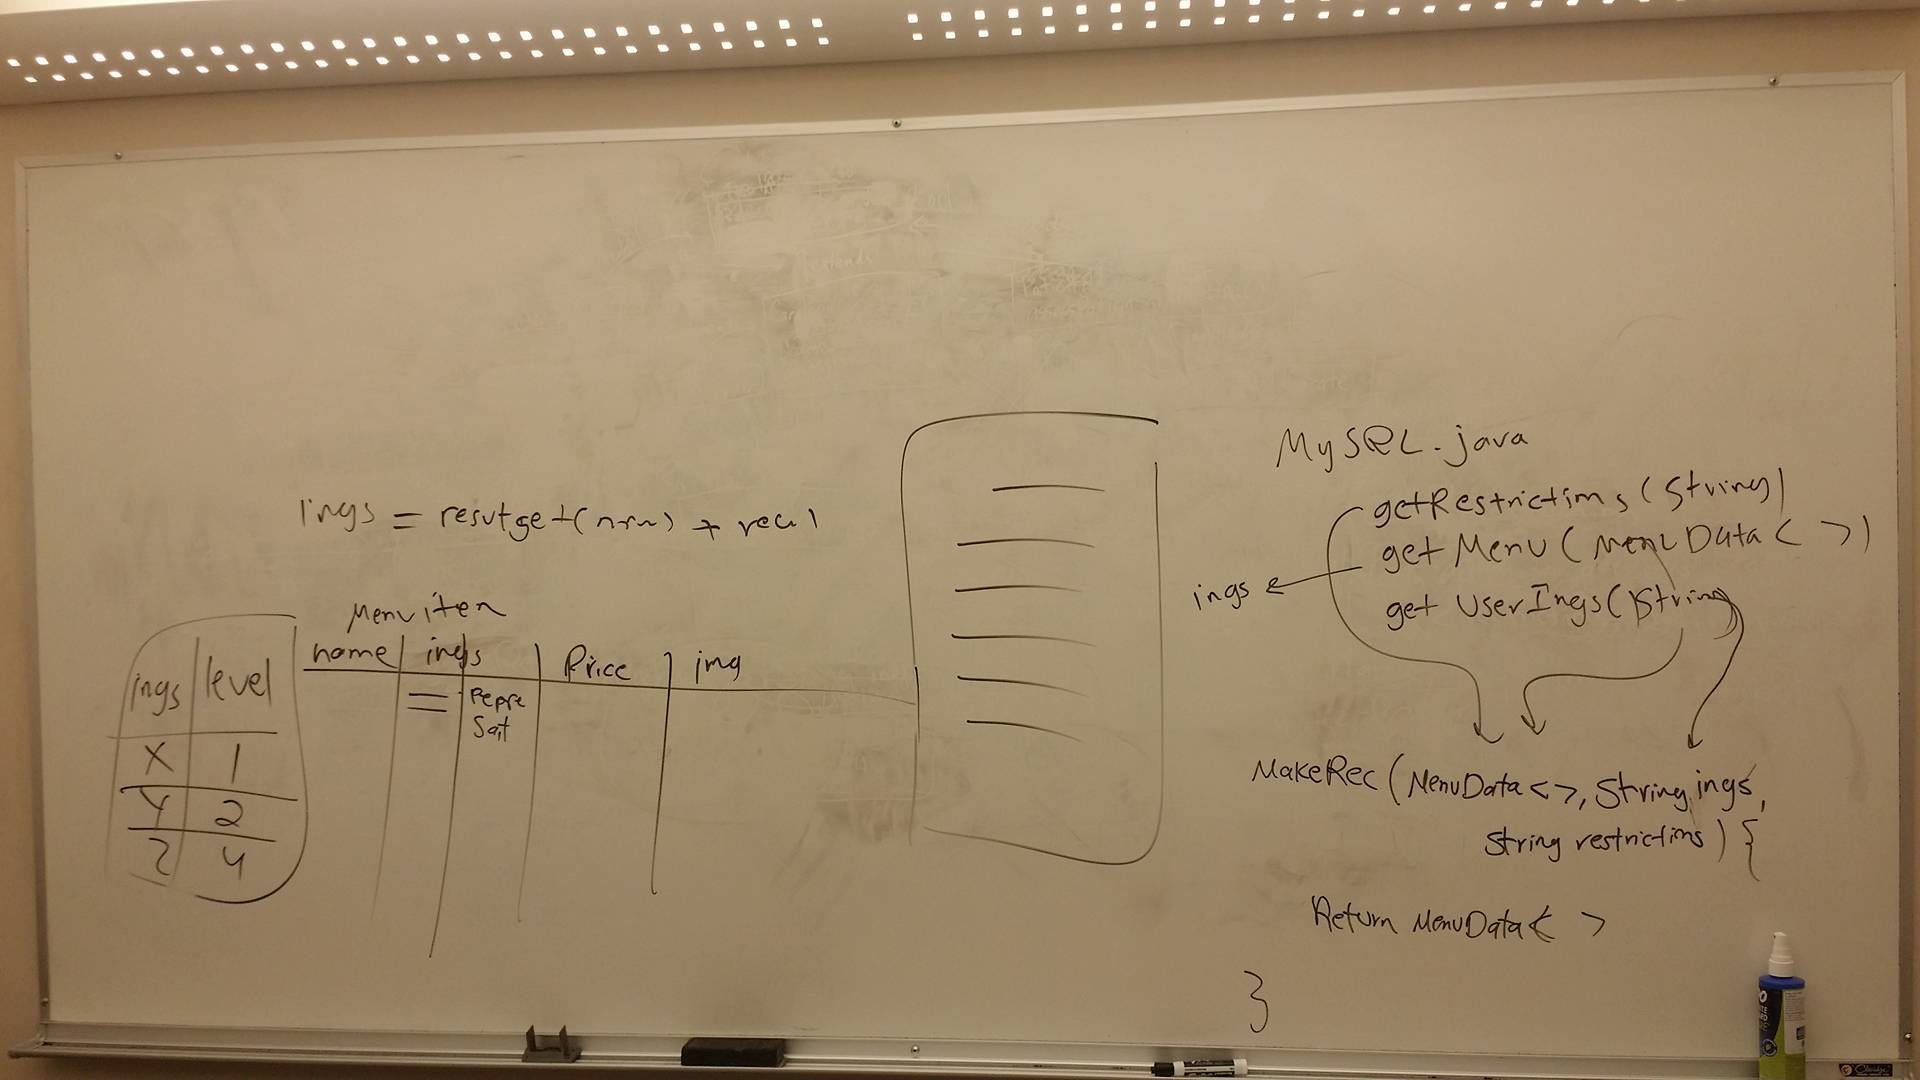 ings = resutget(nrn) + recu1
Menu iten
name ings Price img
Pepre
Salt
ings level
X 1
Y 2
Z 4
MySQL.java
getRestrictions (String)
get Menu (Menu Data < >)
ings
get UserIngs()String
MakeRec (MenuData<>, String ings,
String restrictions) {
Return MenuData< >
}